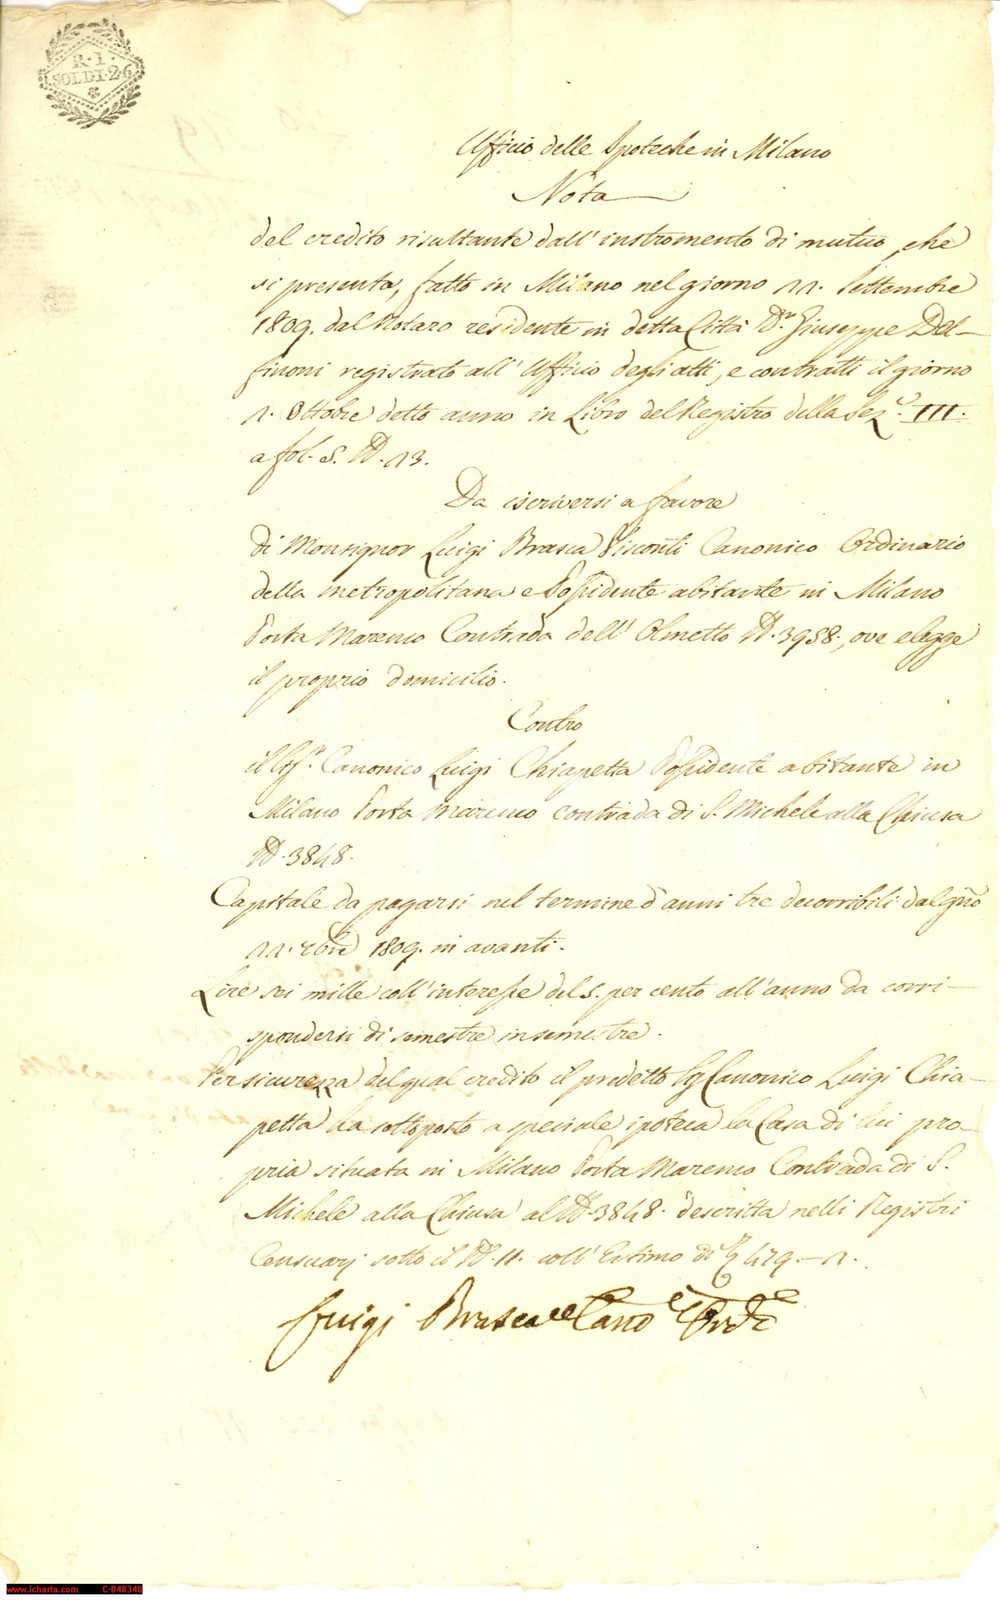 R. I.
SOLDI. 2. 6
Ufficio delle Ipoteche in Milano
Nota
del credito risultante dall' instromento di mutuo, che
si presenta, fatto in Milano nel giorno 11. Settembre
1809. dal Notaro residente in detta Città Dr. Giuseppe Del-
finoni registrato all' Ufficio degli atti, e contratti il giorno
1. Ottobre detto anno in Libro del Registro della Sez.e III.
a fol. 5. N. 13.
Da iscriversi a favore
di Monsignor Luigi Brasca Visconti Canonico Ordinario
della metropolitana e Possidente abitante in Milano
Porta Marengo Contrada dell' Olmetto N. 3958., ove elegge
il proprio domicilio.
Contro
il Sigr. Canonico Luigi Chiapetta Possidente abitante in
Milano Porta Marengo contrada di S. Michele alla Chiusa
N. 3848.
Capitale da pagarsi nel termine d'anni tre decorribili dal gno
11. 7bre 1809. in avanti.
Lire sei mille coll' interesse del 5. per cento all' anno da corri-
spondersi di semestre in semestre.
Per sicurezza del qual credito il predetto Sig Canonico Luigi Chia-
petta ha sottoposto a speciale ipoteca la Casa di lui pro-
pria situata in Milano Porta Marengo Contrada di S.
Michele alla Chiusa al N. 3848. descritta nelli Registri
Censuarj sotto il N. 11. coll' Estimo di 419.-1.
Luigi Brasca Cano Orde
www.icharta.com C-040340